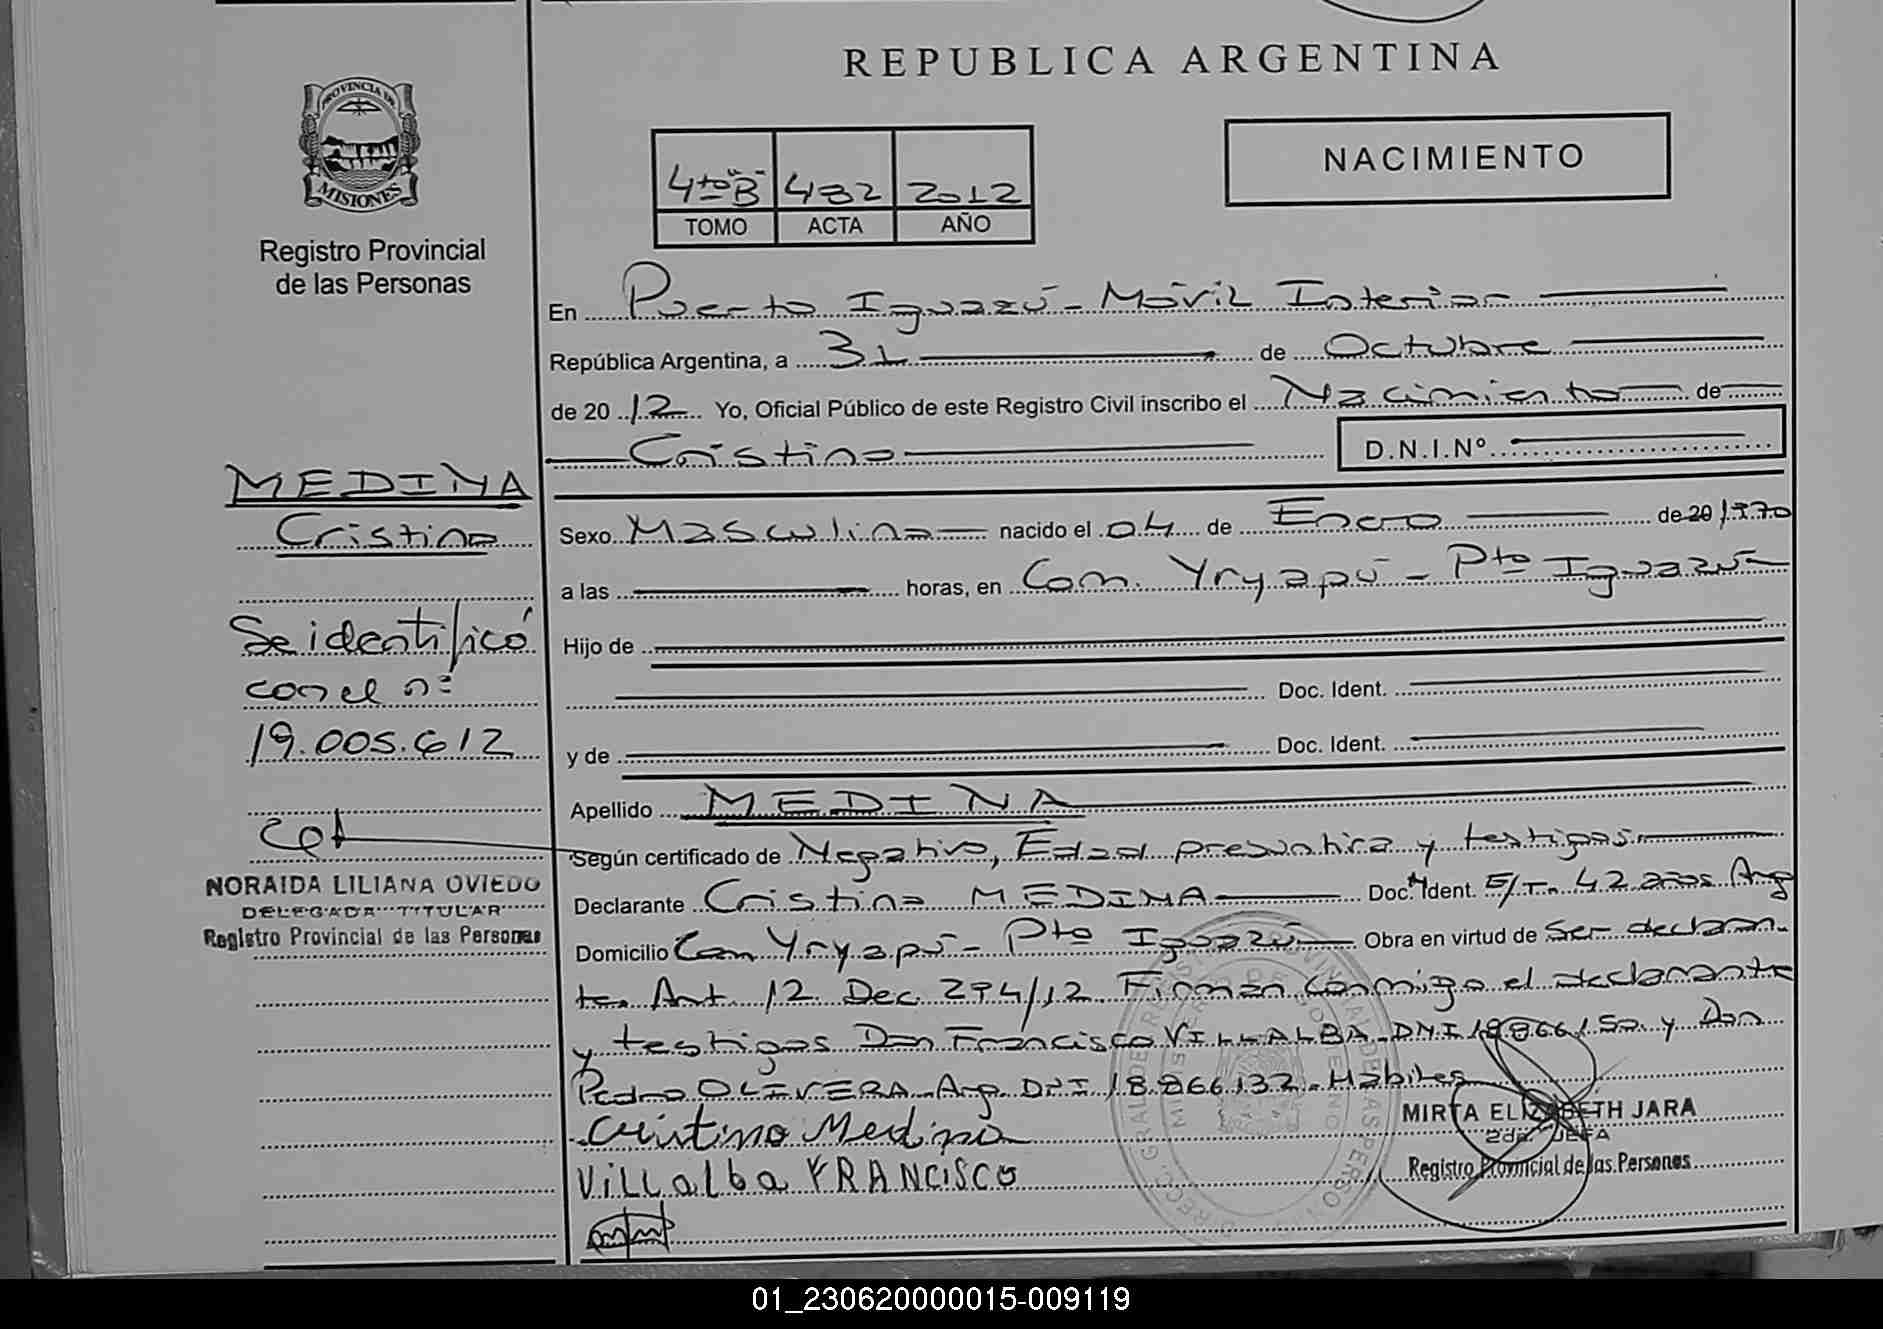 REPUBLICA ARGENTINA
PROVINCIA DE
MISIONES
Registro Provincial
de las Personas
NACIMIENTO
4to "B" 482 2012
TOMO ACTA AÑO
En Puerto Iguazú - Móvil Interior
República Argentina, a 31 de Octubre
de 2012 Yo, Oficial Público de este Registro Civil inscribo el Nacimiento de
Cristino D.N.I.Nº
MEDINA
Cristino
Se identificó
con el nº
19.005.612
NORAIDA LILIANA OVIEDO
DELEGADA TITULAR
Registro Provincial de las Personas
Sexo Masculino nacido el 04 de Enero de 20 1970
a las horas, en Com. Yryapú - Pto Iguazú
Hijo de
Doc. Ident.
y de Doc. Ident.
Apellido MEDINA
Según certificado de Negativo, Edad presuntiva y testigos
Declarante Cristino MEDINA Doc. Ident. E/T. 42 años Arg
Domicilio Com Yryapú - Pto Iguazú Obra en virtud de Ser declaran-
te. Art. 12 Dec. 294/12. Firman conmigo el declarante
y testigos Don Francisco VILLALBA DNI 18866150 y Don
Pedro OLIVERA Arg. DNI 18.866.132. Hábiles
Cristino Medina
MIRTA ELIZABETH JARA
2da. JEFA
Registro Provincial de las Personas
ViLLalba FRANCiSCO
01_230620000015-009119